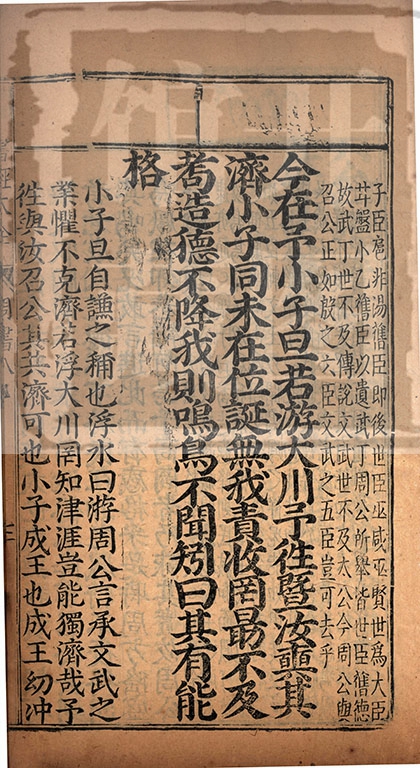 子臣扈非湯舊臣即後世臣巫咸巫賢世爲大臣
甘盤小乙舊臣以遺武丁周公所舉皆世臣舊德
故武丁世不及傅說文武世不及太公今周公與
召公正如殷之六臣文武之五臣豈可去乎
今在予小子旦若游大川予往暨汝奭其
濟小子同未在位誕無我責收罔朂不及
耇造德不降我則鳴鳥不聞矧曰其有能
格
小子旦自謙之稱也浮水曰游周公言承文武之
業懼不克濟若浮大川罔知津涯豈能獨濟哉予
徃與汝召公其共濟可也小子成王也成王幼冲